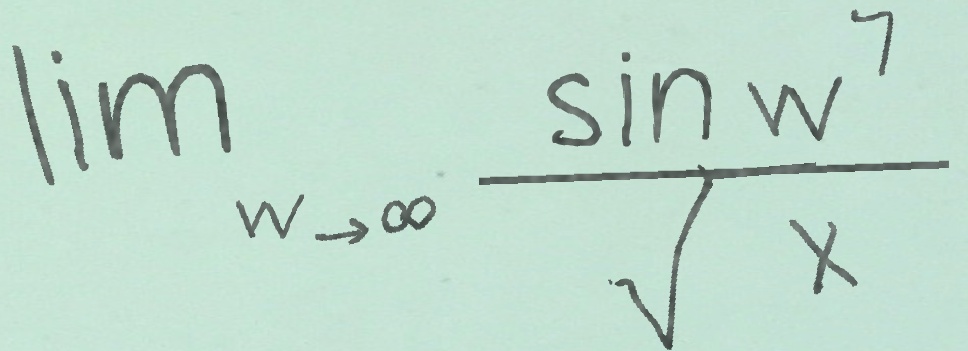 \lim_{w \to \infty} \frac{\sin w^7}{\sqrt{x}}